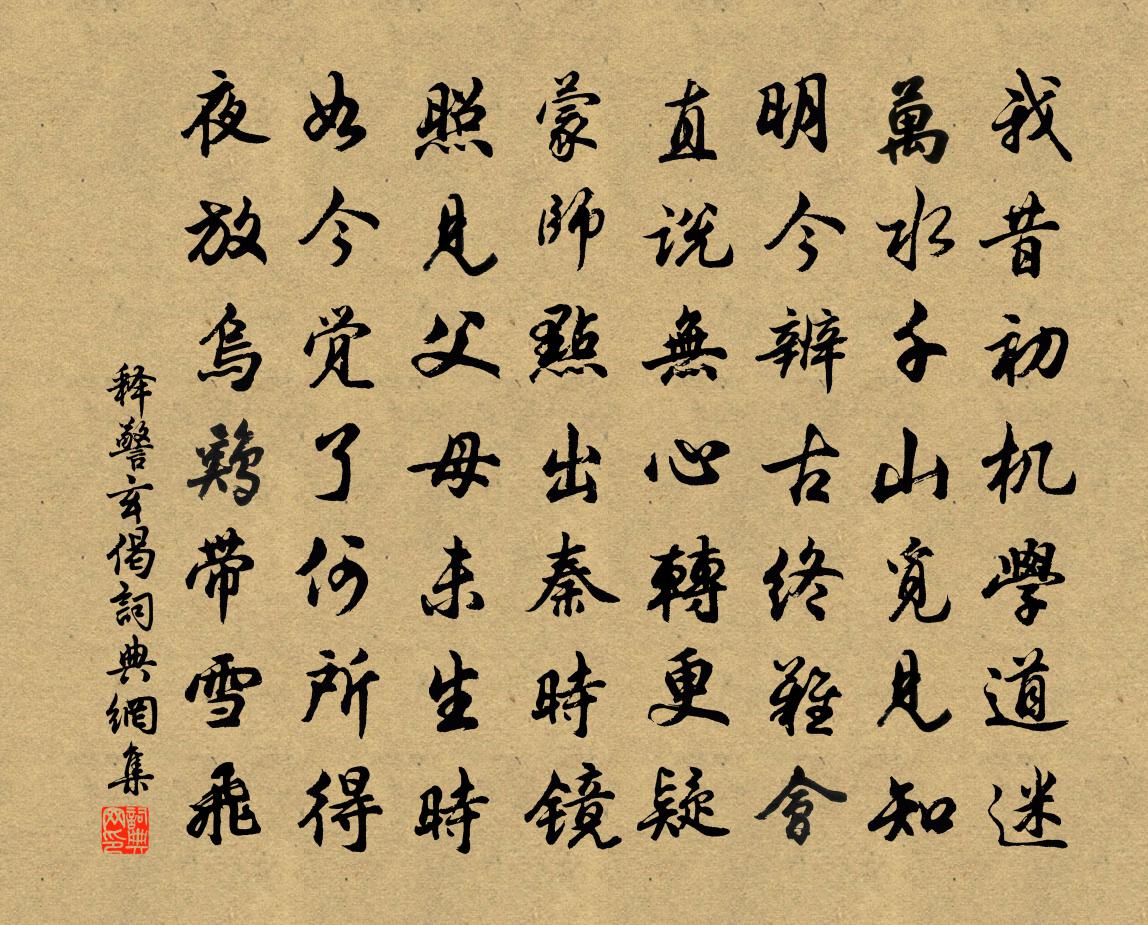 我昔初机學道迷
萬水千山覓見知
明今辨古終難會
直説無心轉更疑
蒙師點出秦時镜
照見父母未生時
如今觉了何所得
夜放烏鷄带雪飛
释警玄偈詞典網集
詞典網印